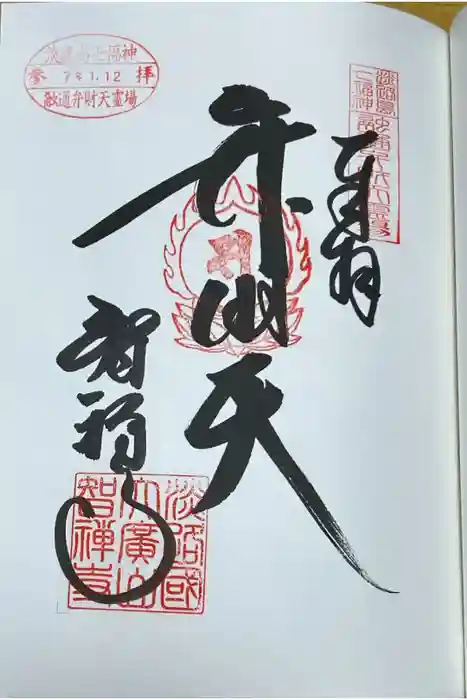 淡路島七福神
参 7.1.12 拝
融通弁財天霊場
淡路島七福神
融通弁財天霊場
奉拜
弁財天
智禅寺
淡路國
大廣山
智禪寺